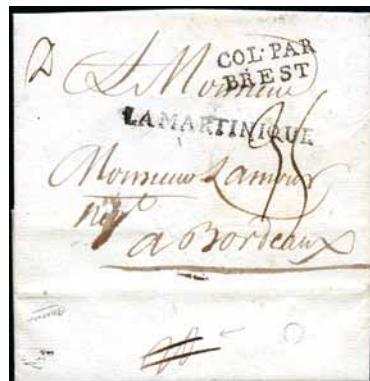 COL·PAR
BREST
A Monsieur
LA MARTINIQUE
Monsieur Lamour
a Bordeaux